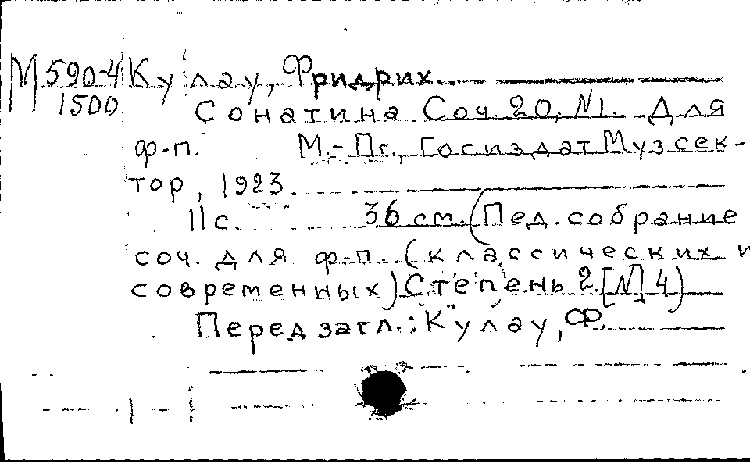 М 590-4 Кулау, Фридрих.
1500 Сонатина Соч. 20, №1. Для
ф-п. М.-Пг., Госиздат Музсек-
тор, 1923.
11 с. 36 см. (Пед. собрание
соч. для ф-п. (классических и
современных) Степень 2. [№ 4)
Перед загл.: Кулау, Ф.